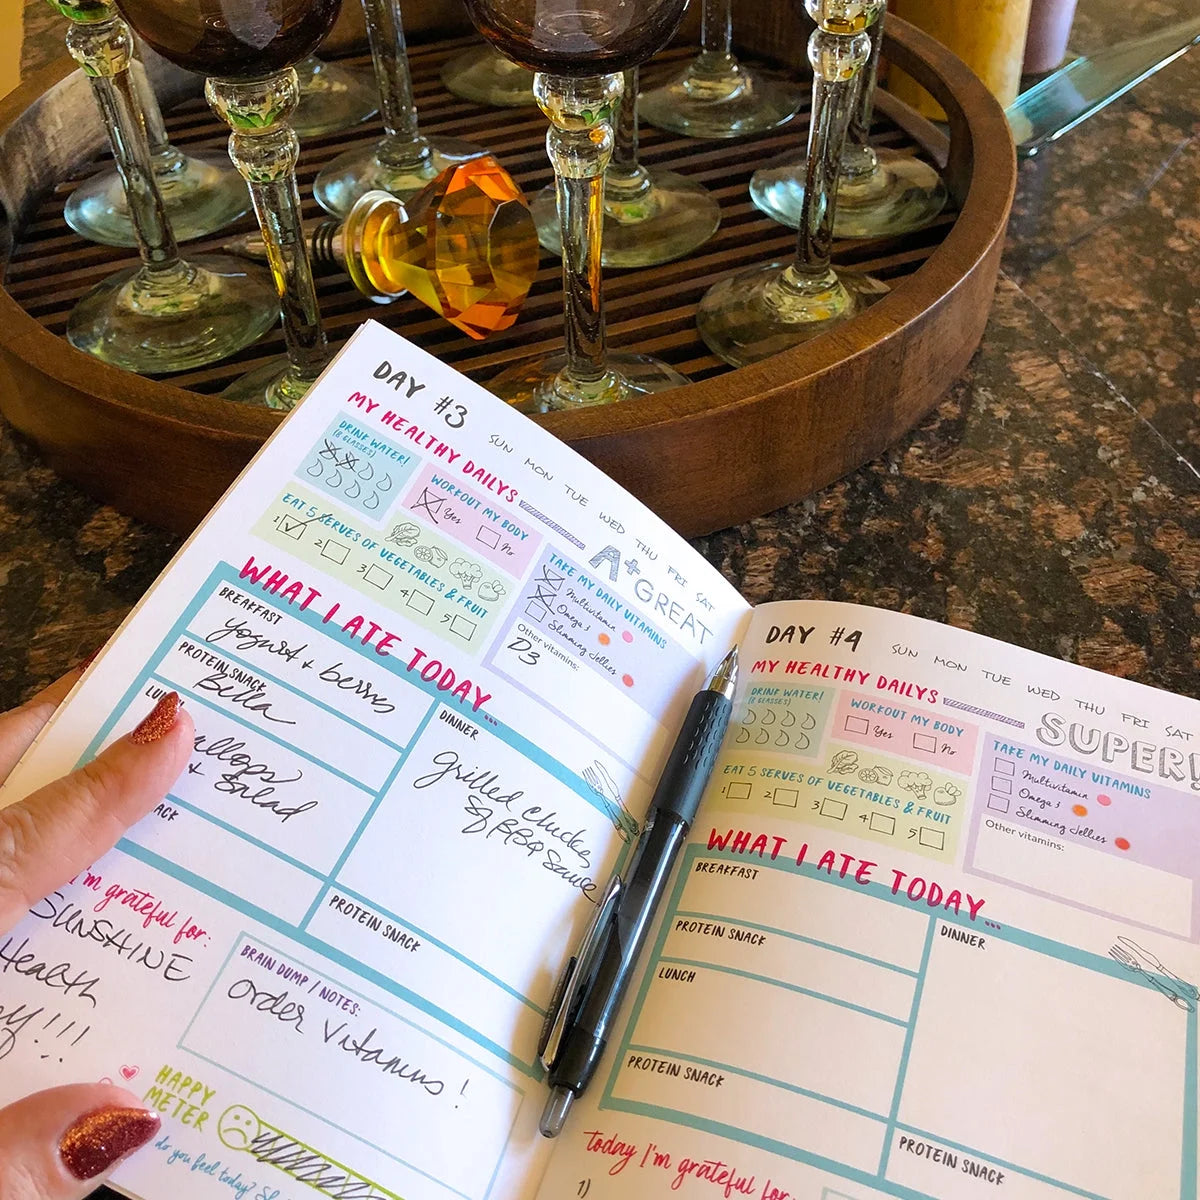 DAY #3
SUN MON TUE WED THU FRI SAT
MY HEALTHY DAILYS
A+ GREAT
DRINK WATER!
(8 GLASSES)
WORKOUT MY BODY
Yes No
EAT 5 SERVES OF VEGETABLES & FRUIT
1 2 3 4 5
TAKE MY DAILY VITAMINS
Multivitamin
Omega 3
Slimming Jellies
Other vitamins:
D3
WHAT I ATE TODAY...
BREAKFAST
yogurt + berries
PROTEIN SNACK
Bella
& Salad
DINNER
grilled chicken
BBQ Sauce
PROTEIN SNACK
I'm grateful for:
SUNSHINE
Health
BRAIN DUMP / NOTES:
order vitamins!
HAPPY
METER
do you feel today?
DAY #4
SUN MON TUE WED THU FRI SAT
MY HEALTHY DAILYS
SUPER!
DRINK WATER!
(8 GLASSES)
WORKOUT MY BODY
Yes No
EAT 5 SERVES OF VEGETABLES & FRUIT
1 2 3 4 5
TAKE MY DAILY VITAMINS
Multivitamin
Omega 3
Slimming Jellies
Other vitamins:
WHAT I ATE TODAY...
BREAKFAST
PROTEIN SNACK
LUNCH
PROTEIN SNACK
DINNER
PROTEIN SNACK
today I'm grateful for:
1)